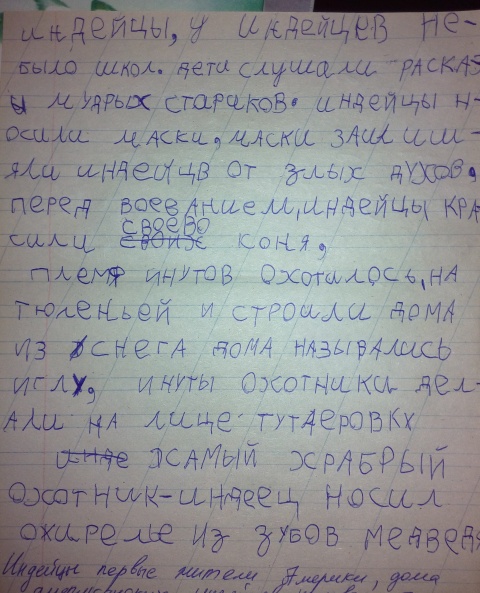 индейцы, у индейцев не-
было школ. дети слушали расказ
ы мудрых стариков. индейцы н-
осили маски, маски защищ-
яли индейцв от злых духов,
перед воеванием, индейцы кра
сили своево своих коня,
племя инутов охотилось, на
тюленьей и строили дома
из снега дома назывались
иглу, инуты охотники дел-
али на лице тутаеровку
инде жсамый храбрый
охотник-индеец носил
ожирелье из зубов медведя
Индейцы первые жители Америки, дома